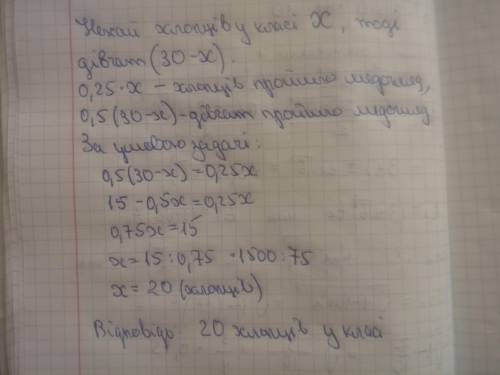 Нехай хлопців у класі X, тоді
дівчат (30-x).
0,25·x - хлопців пройшло медогляд,
0,5(30-x)-дівчат пройшло медогляд
За умовою задачі:
0,5(30-x)=0,25x
15-0,5x=0,25x
0,75x=15
x=15:0,75 =1500:75
x=20 (хлопців)
Відповідь 20 хлопців у класі